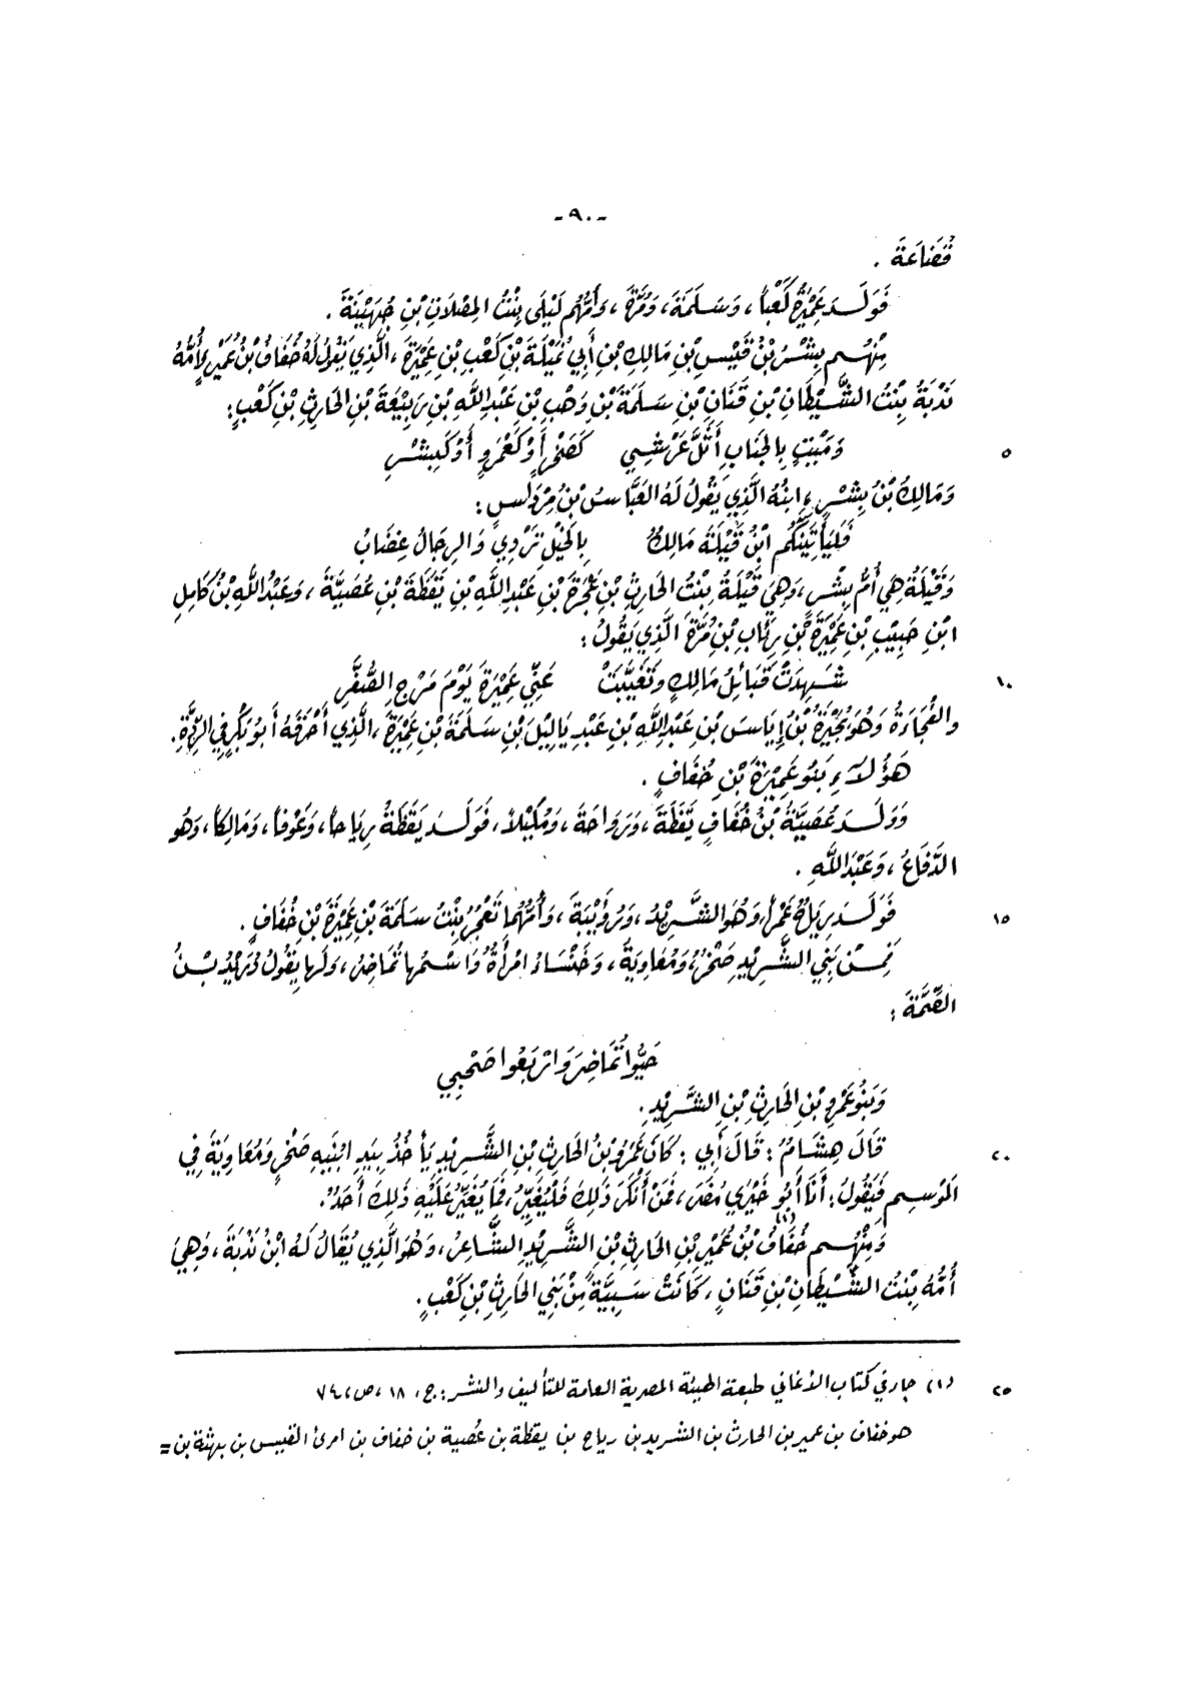 -٩٠-
قُضَاعَةَ .
فَوَلَدَ عَمِيْرَةُ كَعْبَاً، وَسَلَمَةَ، وَمُرَّةَ، وَأُمُّهُم لَيْلَى بِنْتُ المِصْلَاتِ بْنِ جُهَيْنَةَ .
مِنْهُم بِشْرُ بْنُ قَيْسِ بْنِ مَالِكِ بْنِ أَبِي نُمَيْلَةَ بْنِ كَعْبِ بْنِ عَمِيْرَةَ، الَّذِي يَقُولُ لَهُ خُفَافُ بْنُ عُمَيْرٍ لِأُمِّهُ
نَدْبَةُ بِنْتُ الشَّيْطَانِ بْنِ قَنَانِ بْنِ سَلَمَةَ بْنِ وَهْبِ بْنِ عَبْدِ اللَّهِ بْنِ رَبِيْعَةَ بْنِ الحَارِثِ بْنِ كَعْبٍ:
وَمَيْتٍ بِالجَنَابِ أَثَلَّ عَرْشِي    كَصَخْرٍ أَوْ كَعَمْرٍو أَوْ كَبِشْرِ ٥
وَمَالِكُ بْنُ بِشْرٍ، ابنُهُ الَّذِي يَقُولُ لَهُ العَبَّاسُ بْنُ مِرْدَاسٍ:
فَلَيَأْتِيَنَّكُم ابْنُ قَيْلَةَ مَالِكٌ    بِالخَيْلِ تَرْدِي وَالرِجَالُ غِضَابُ
وَقَيْلَةُ هِيَ أُمُّ بِشْرٍ، وَهِيَ قَيْلَةُ بِنْتُ الحَارِثِ بْنِ عُجْرَةَ بْنِ عَبْدِ اللَّهِ بْنِ يَقَظَةَ بْنِ عُصَيَّةَ، وَعَبْدُ اللَّهِ بْنُ كَامِلِ
ابْنِ حَبِيْبِ بْنِ عَمِيْرَةَ بْنِ رِئَابِ بْنِ مُرَّةَ الَّذِي يَقُولُ:
شَهِدَتْ قَبَائِلُ مَالِكٍ وَتَغَيَّبَتْ    عَنِّي عَمِيْرَةُ يَوْمَ مَرْجِ الصُّفَّرِ ١٠
والفُجَاءَةُ وَهُوَ بُجَيْرَةُ بْنُ إِيَاسِ بْنِ عَبْدِ اللَّهِ بْنِ عَبْدِ يَالِيْلَ بْنِ سَلَمَةَ بْنِ عَمِيْرَةَ، الَّذِي أَحْرَقَهُ أَبُو بَكْرٍ فِي الرِّدَّةِ.
هَؤُلَآءِ بَنُو عَمِيْرَةَ بْنِ خُفَافٍ .
وَوَلَدَ عُصَيَّةُ بْنُ خُفَافٍ يَقَظَةَ، وَرَوَاحَةَ، وَمُكَيْلاً، فَوَلَدَ يَقَظَةُ رِيَاحاً، وَعَوْفاً، وَمَالِكاً، وَهُوَ
الدَّفَاعُ، وَعَبْدَ اللَّهِ .
فَوَلَدَ رِيَاحُ عَمْراً، وَهُوَ الشَّرِيْدُ، وَرُؤَيْبَةَ، وَأُمُّهُمَا تَعْجُرُ بِنْتُ سَلَمَةَ بْنِ عَمِيْرَةَ بْنِ خُفَافٍ . ١٥
فَمِنْ بَنِي الشَّرِيْدِ صَخْرٌ، وَمُعَاوِيَةُ، وَخَنْسَاءُ امْرَأَةٌ وَاسْمُها تُمَاضِرُ، وَلَها يَقُولُ دُرَيْدُ بْنُ
الصِّمَّةِ :
حَيُّوا تُمَاضِرَ وَارْبَعُوا صَحْبِي
وَبَنُو عَمْرِو بْنِ الحَارِثِ بْنِ الشَّرِيْدِ .
قَالَ هِشَامٌ : قَالَ أَبِي : كَانَ عَمْرُو بْنُ الحَارِثِ بْنِ الشَّرِيْدِ يَأْخُذُ بِيَدِ ابْنَيْهِ صَخْرٍ وَمُعَاوِيَةَ فِي ٢٠
المَوْسِمِ فَيَقُولُ: أَنَا أَبُو خَيْرَي مُضَرَ، فَمَنْ أَنْكَرَ ذَلِكَ فَلْيُغَيِّرْ، فَمَا يُغَيِّرُ عَلَيْهِ ذَلِكَ أَحَدٌ.
وَمِنْهُم خُفَافُ(١) بْنُ عُمَيْرِ بْنِ الحَارِثِ بْنِ الشَّرِيْدِ الشَّاعِرُ، وَهُوَ الَّذِي يُقَالُ لَهُ ابْنُ نَدْبَةَ، وَهِيَ
أُمُّهُ بِنْتُ الشَّيْطَانِ بْنِ قَنَانٍ، كَانَتْ سَبِيَّةً مِنْ بَنِي الحَارِثِ بْنِ كَعْبٍ.
(١) جاء في كتاب الأغاني طبعة الهيئة المصرية العامة للتأليف والنشر: ج، ١٨ ،ص، ٧٤ ٢٥
هو خفاف بن عمير بن الحارث بن الشريد بن رياح بن يقظة بن عُصية بن خفاف بن امرئ القيس بن بهثة بن =